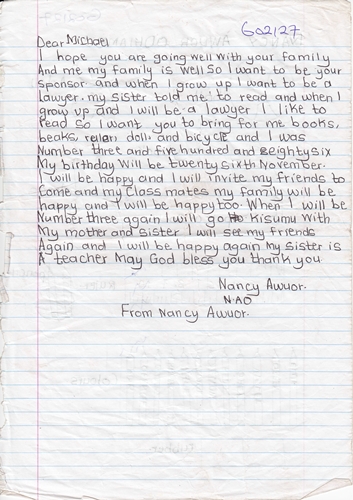 602127
Dear Michael
I hope you are going well with your family
And me my family is well so I want to be your
sponsor and when I grow up I want to be a
lawyer. my sister told me to read and when I
grow up and I will be a lawyer I like to
read so I want you to bring for me books,
beaks, doll, and bicycle and I was
Number three and five hundred and eightysix
My birthday will be twenty sixth November.
I will be happy and I will invite my friends to
come and my class mates my family will be
happy and I will be happy too. When I will be
Number three again I will go to Kisumu with
My mother and sister I will see my friends
Again and I will be happy again my sister is
A teacher May God bless you thank you
Nancy Awuor.
N.AO
From Nancy Awuor.